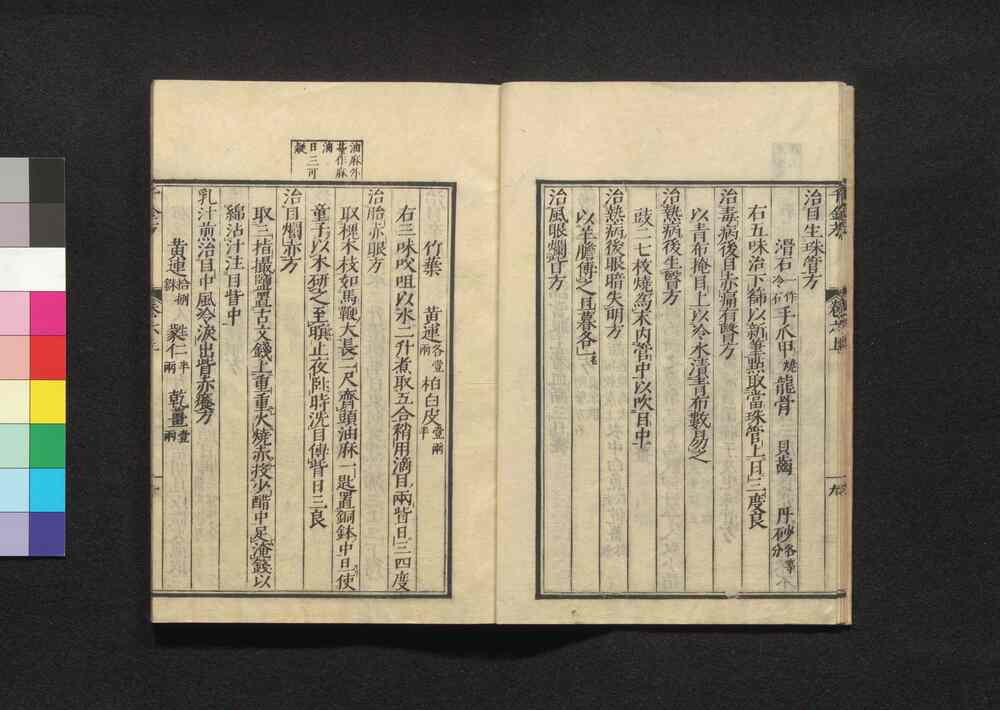 治目生珠管方
滑石一作冷石 手爪甲燒 龍骨 貝齒 丹砂各等分
右五味治下篩以新筆點取當珠管上日三度良
治毒病後目赤痛有瞖方
以青布掩目上以冷水漬青布數易之
治熱病後生瞖方
豉二七枚燒為末內管中以吹目中
治熱病後眼暗失明方
以羊膽傅之旦暮各一
治風眼爛眥方
竹葉 黃連各壹兩 柏白皮壹兩半
右三味㕮咀以水二升煮取五合稍用滴目兩眥日三四度
治胎赤眼方
取槐木枝如馬鞭大長二尺齊頭油麻一匙置銅鉢中旦使
童子以木研之至瞑止夜臥時洗目傅眥日三良
治目爛赤方
取三指撮鹽置古文錢上重重火燒赤投少酢中足淹錢以
綿沾汁注目眥中
乳汁煎治目中風冷淚出眥赤癢方
黃連拾捌銖 蕤仁半兩 乾薑壹兩
油麻外
臺作麻
滴
日三可